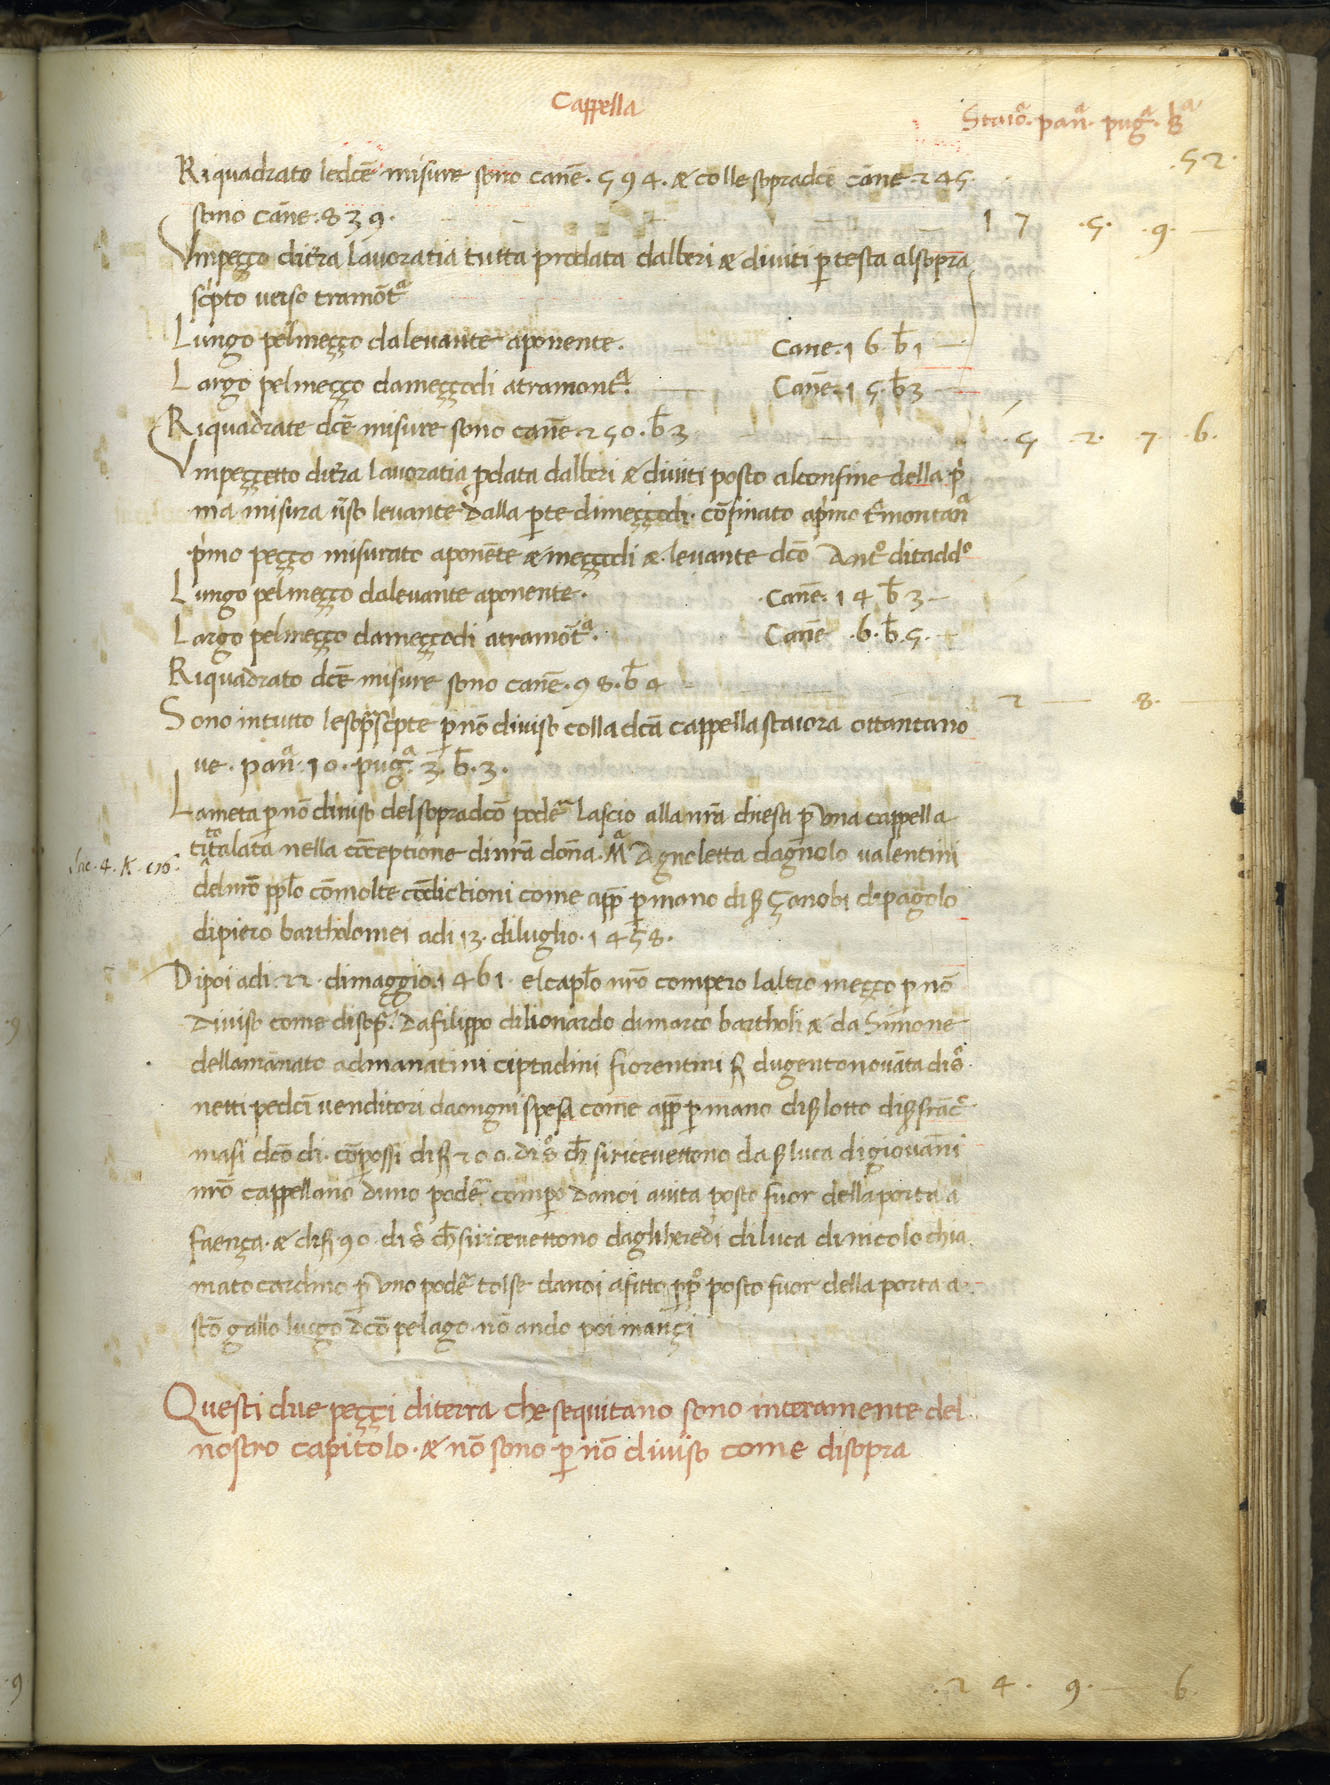 Cappella
Staio͞ra · pan͞a · pug͞a · b͞a
· 52 ·
Riquadrato ledc̄e misure sono can̄e · 594 · æ colle sopradc̄e cāne 245 ·
sono cān̄e · 839 · 17 · 5 · 9 · —
Vnpezzo dit̄ra lauoratia tutta prodata dalberi æ diuiti p̄ testa alsopra
sc̄pto uerso tramōta
Lungo pelmezzo daleuante aponente · Cane · 16 b̄ 1 —
Largo pelmezzo damezzodi atramonta · — Can̄e · 15 · b̄ 3 —
Riquadrate dc̄e misure sono can̄e · 250 · b̄ 3 · 5 · 2 · 7 · 6 ·
Vnpezzetto dit̄ra lauoratia p̄data dalberi æ diuiti posto alconfine della p̄i
ma misura ūso leuante dalla p̄te dimezzodi · cōfinato ap̄imo t̄montana
p̄imo pezzo misurato aponēte æ mezzodi æ leuante dc̄o Anto ditaddo
Lungo pelmezzo daleuante aponente · · Can̄e · 14 b̄ 3 —
Largo pelmezzo damezzodi atramōta · Can̄e · 6 · b̄ · 5 · —
Riquadrato dc̄e misure sono can̄e · 98 · b̄ 4 2 — 8 · —
Sono intutto lesop̄asc̄pte p̄ nō diuiso colla dc̄a cappella staiora ottantano
ue · pana · 10 · puga · 3 · b̄ · 3 ·
Lameta p̄ nō diuiso delsopradc̄o podēr lascio alla nr̄a chiesa p̄ una cappella
titolata nella cōceptione dinr̄a dōna · Ma Agnoletta dagn̄olo ualentini
delnr̄o pp̄lo cōmolte cōdictioni come app̄ p̄ mano di S Zanobi dipagolo
dipiero bartholomei adi 13 · diluglio · 1458 ·
Dipoi adi · 22 · dimaggio · 1461 · elcapl̄o nr̄o compero laltro mezzo p̄ nō
diuiso come disop̄a · dafilippo dilionardo dimarco bartholi æ da Simone
dellamānato admanatini ciptadini fiorentini f̄ dugentonouāta dis̄o
netti pedc̄i uenditori daongni spesa come app̄ p̄ mano diS lotto diS frāco
masi dc̄o di · cōpossi di f̄ 200 · dis̄o ch̄ siriceuettono da S luca digiouāni
nr̄o cappellano duno podēr compo danoi auita posto fuor dellaporta a
faenza · æ di f̄ 90 · dis̄o ch̄ siriceuettono daglheredi diluca dinicolo chia
mato cardino p̄ uno podēr tolse danoi afitto pp̄o posto fuor della porta a
sc̄o gallo luogo dc̄o pelago · nō ando poi inanzi
Questi due pezzi diterra che sequitano sono interamente del
nostro capitolo · æ nō sono p̄ nō diuiso come disopra
· 24 · 9 · — 6 ·